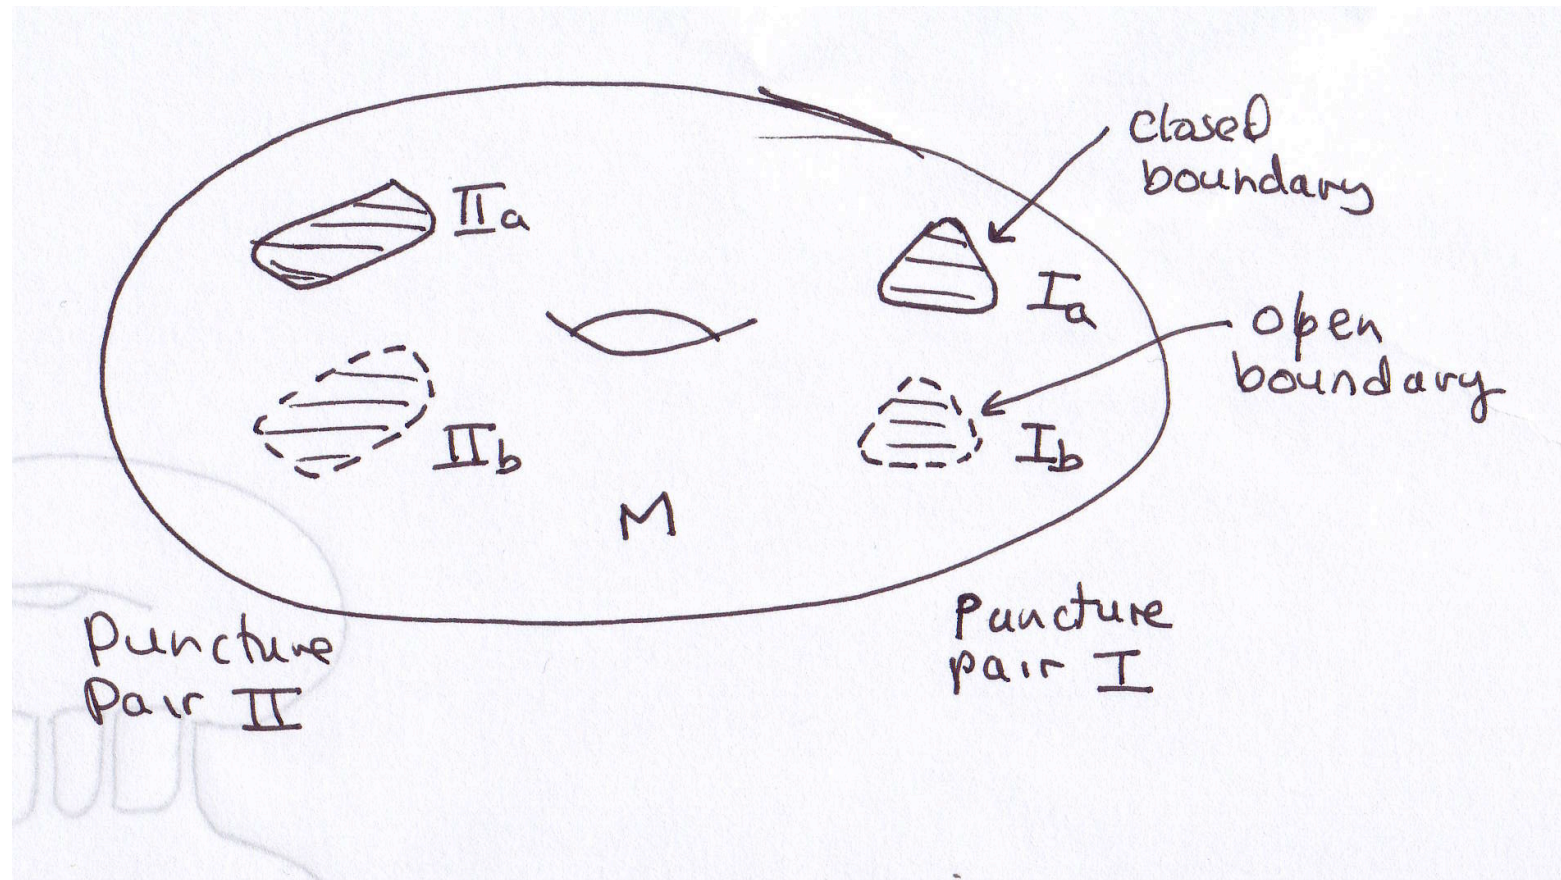 closed
boundary
IIa
Ia
open
boundary
IIb
Ib
M
Puncture
pair I
Puncture
Pair II